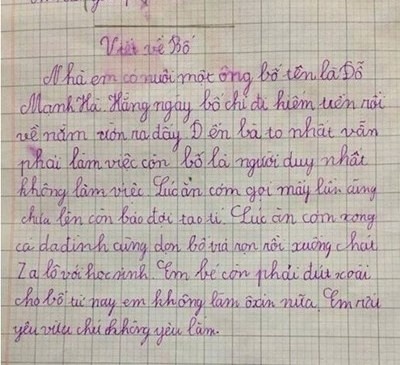 Viết về Bố
Nhà em có nuôi một ông bố tên là Đỗ
Mạnh Hà. Hằng ngày bố chỉ đi kiếm tiền rồi
về nằm ườn ra đấy Đến bà to nhất vẫn
phải làm việc còn bố là người duy nhất
không làm việc Lúc ăn cơm gọi mấy lần cũng
chưa lên còn bảo đợi tao tí. Lúc ăn cơm xong
cả da dinh cùng dọn bố vả rọn rồi xuống chat
Za lô với học sinh Em bé còn phải đút xoài
cho bố từ nay em không làm ôxin nữa, Em
yêu vừa chứ không yêu lắm.